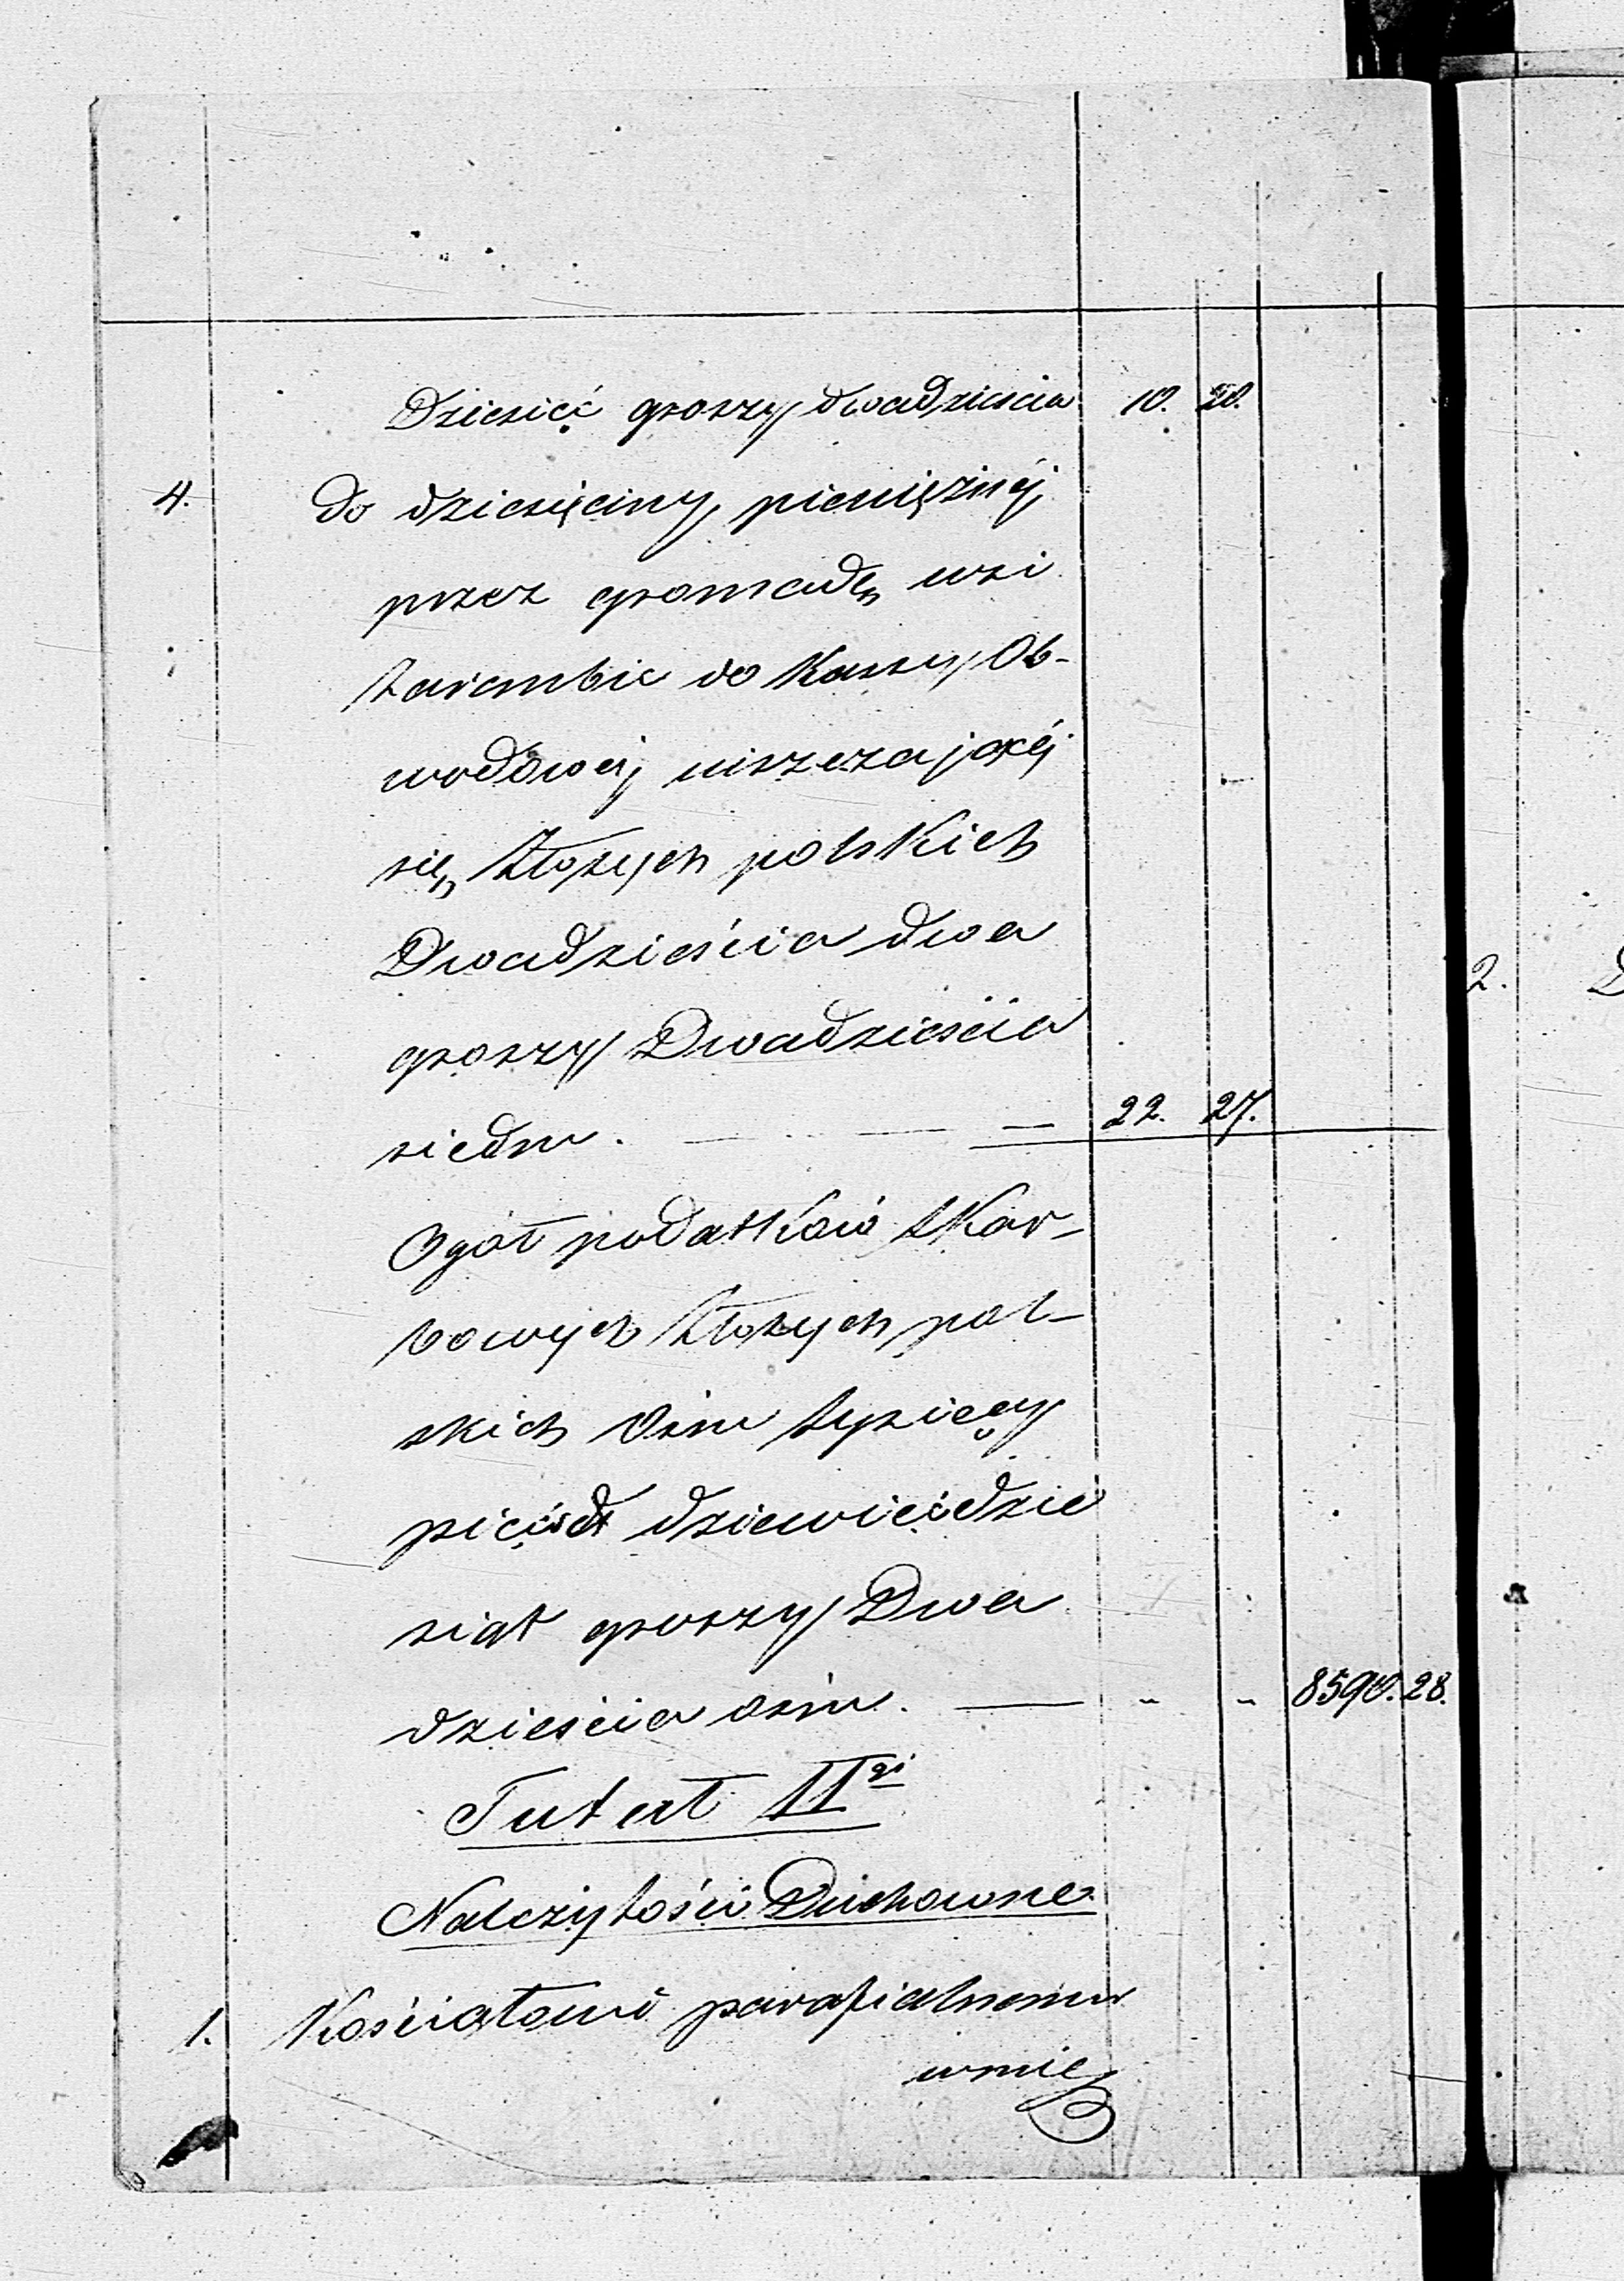 Dziesięć groszy dwadzieścia 10. 20.
4. do dziesięciny pieniężnéj
przez gromadę wsi
Zarembie do Kassy Ob-
wodowéj uiszczającéj
się, Złotych polskich
Dwadzieścia dwa
groszy Dwadzieścia
siedm. — — — 22. 27.
Ogół podatków skar-
bowych Złotych pol-
skich Ośm tysięcy
pięćset dziewięćdzie
siąt groszy Dwa
dzieścia ośm. — " " 8590. 28.
Tytuł II gi
Należytości Duchowne
1. Kościołowi parafialnemu
wmie
2. D